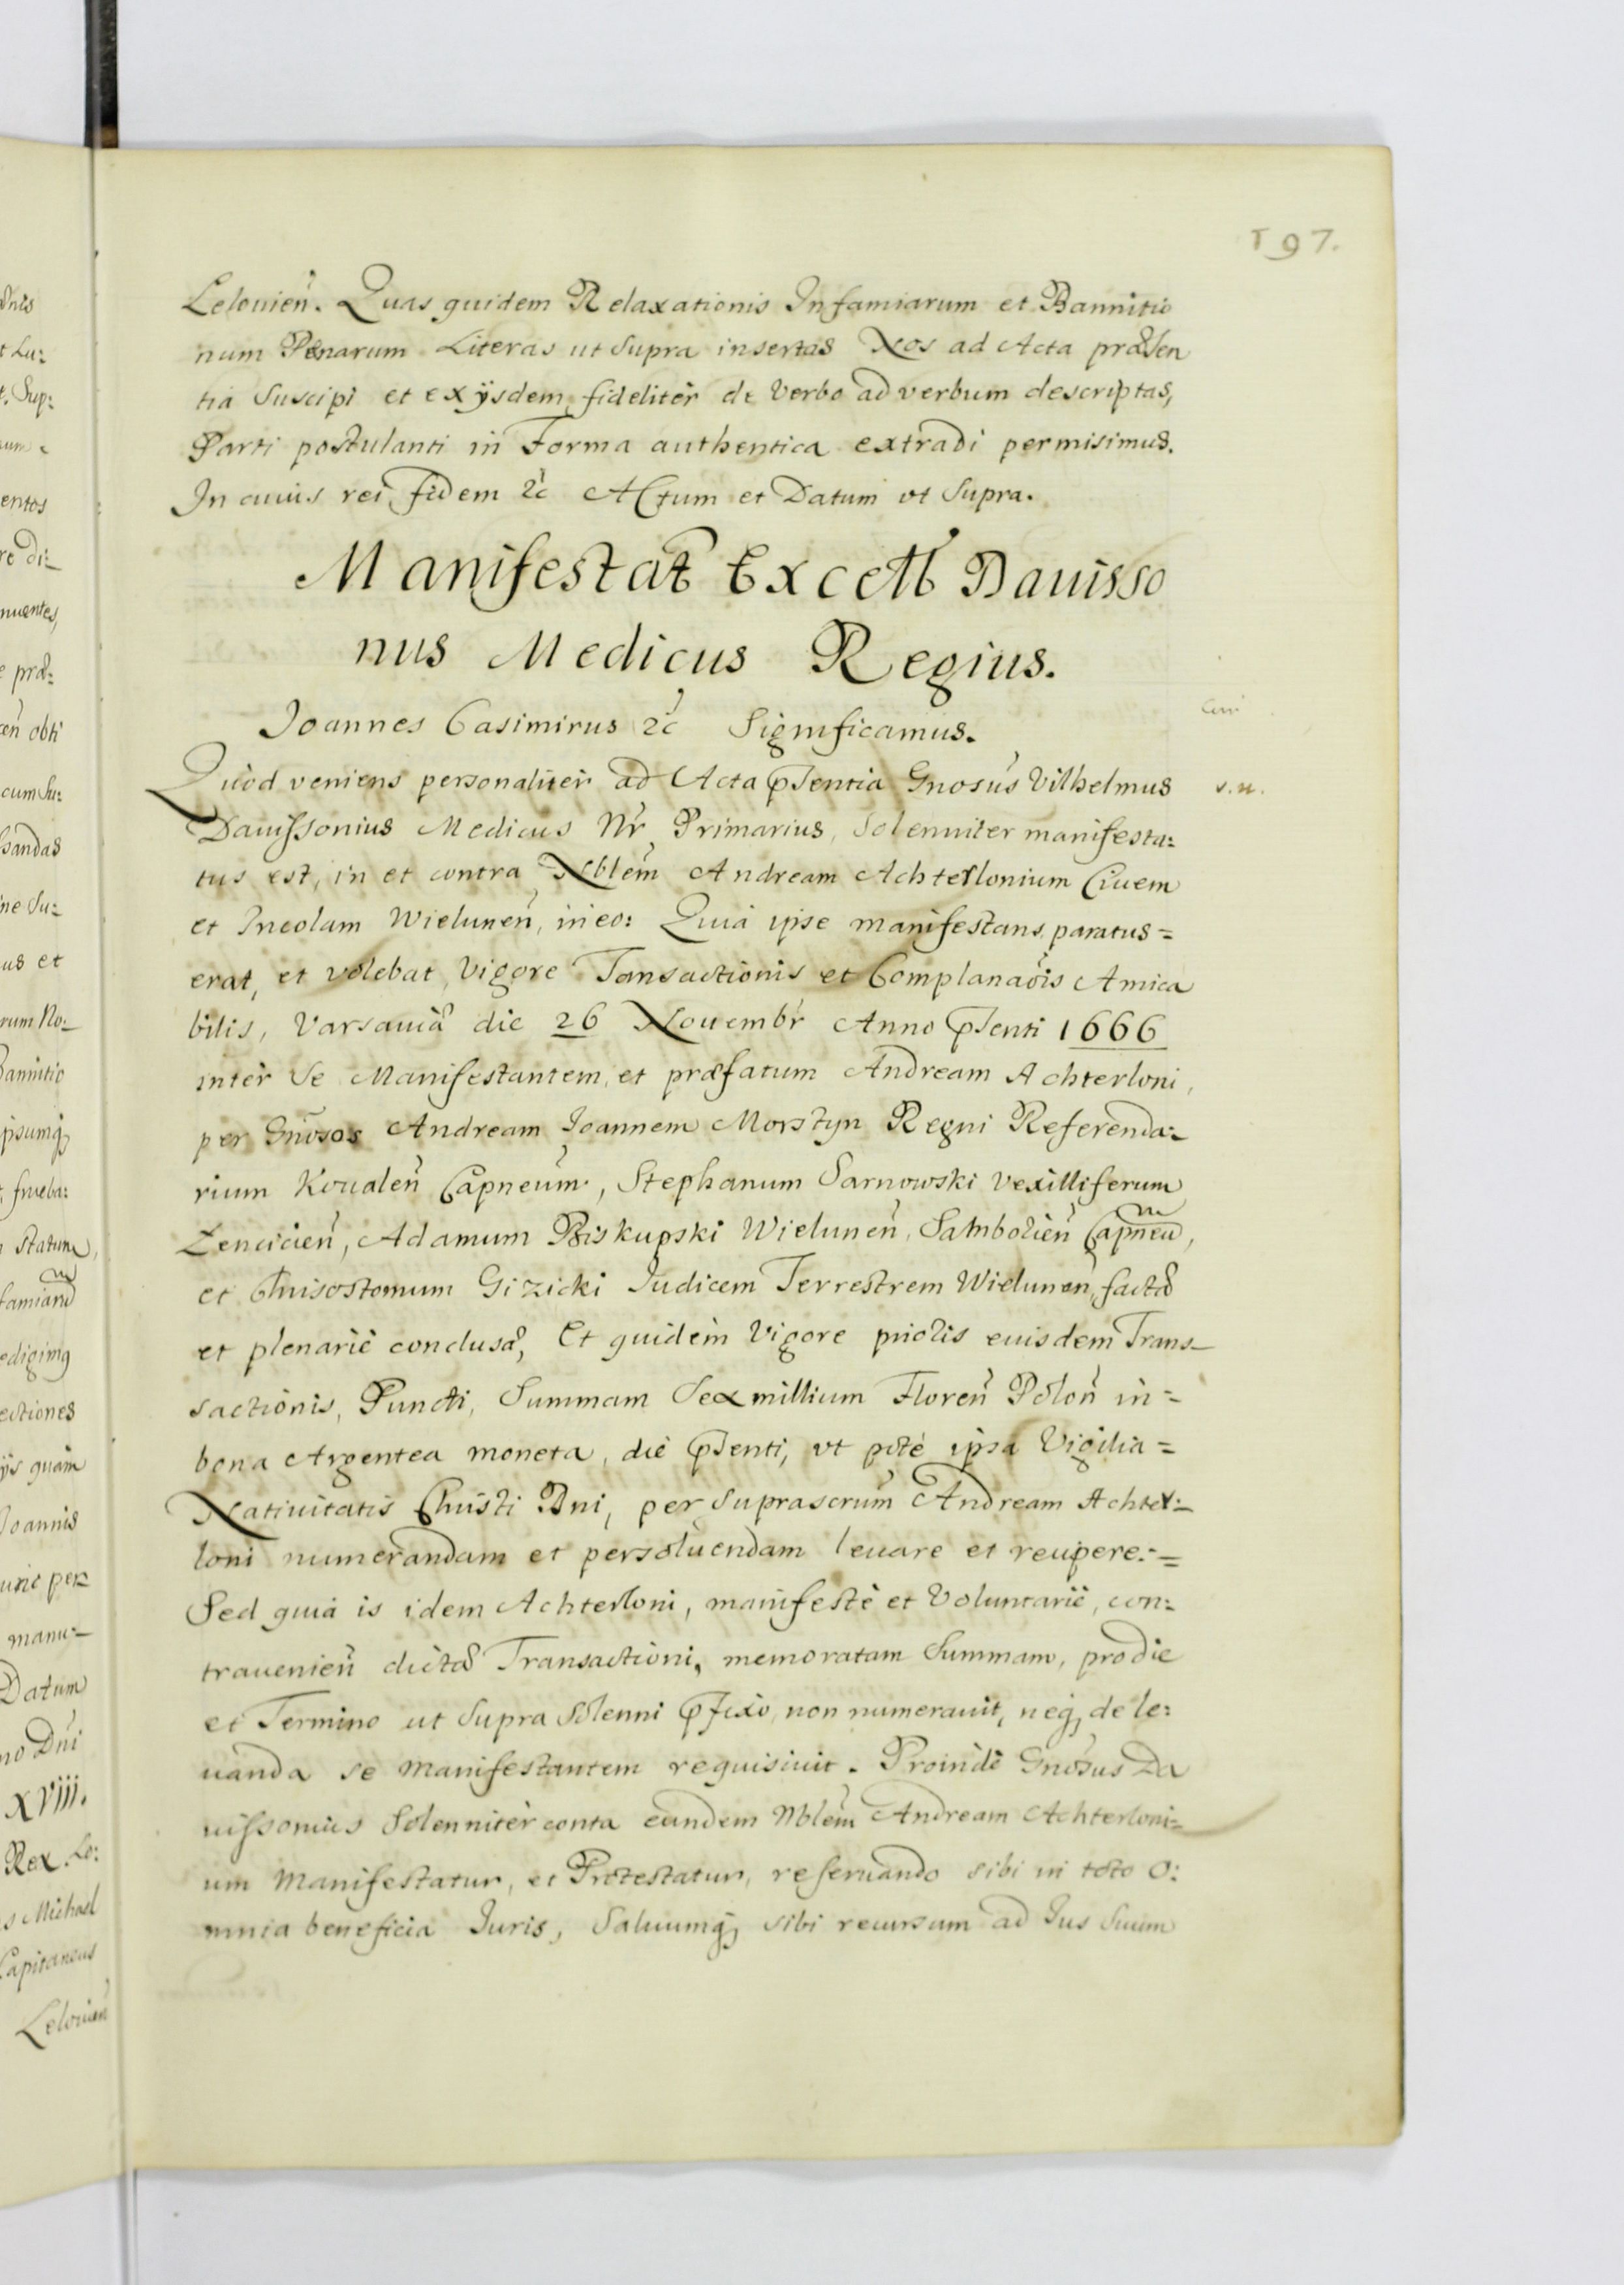 197.
Lelouien̄. Quas quidem Relaxationis Infamiarum et Bannitio
num Pænarum Literas ut supra insertas Nos ad Acta præsen
tia suscipi et ex ijsdem fideliter de verbo ad verbum descriptas,
Parti postulanti in Forma authentica extradi permisimus.
In cuius rei fidem &c Actum et Datum ut supra.
Manifestat̃ Excell͠ Dauisso
nus Medicus Regius.
Joannes Casimirus &c Significamus.
Quod veniens personaliter ad Acta p̄sentia Gnosūs Vilhelmus
Dauissonius Medicus Nr̄ Primarius, solenniter manifesta:
tus est, in et contra Nblem̄ Andream Achterlonium Ciuem
et Incolam Wielunen̄, in eo: Quia ipse manifestans paratus =
erat, et volebat, vigore Tansactionis et Complanaōis Amica
bilis, Varsauiæ die 26 Nouembr̄ Anno p̄senti 1666
inter se Manifestantem, et præfatum Andream Achterloni,
per Gnōsos Andream Joannem Morstyn Regni Referenda:
rium Koualen̄ Capneum̄, Stephanum Sarnowski Vexilliferum
Lencicien̄, Adamum Biskupski Wielunen̄, Sambolien̄ Capneū,
et Chrisostomum Gizicki Judicem Terrestrem Wielunen̄, factæ
et plenarie conclusæ, Et quidem vigore prioris euisdem Trans-
sactionis, Puncti, Summam sex millium Floren̄ Polon̄ in =
bona Argentea moneta, die p̄senti, ut pote ipsa Vigilia =
Natiuitatis Christi Dni, per suprascrum̄ Andream Achter:
loni numerandam et persoluendam leuare et recipere: =
Sed quia is idem Achterloni, manifestè et voluntariè, con:
trauenien̄ dictæ Transactioni, memoratam Summam, pro die
et Termino ut supra solenni p̄fixo, non numerauit, neq3 de le:
uanda se manifestantem requisiuit. Proinde Gnosūs Da
uissonius solenniter conta eundem Nblem̄ Andream Achterloni=
um Manifestatur, et Protestatur, reseruando sibi in toto o:
mnia beneficia Juris, saluumq3 sibi recursum ad Jus suum